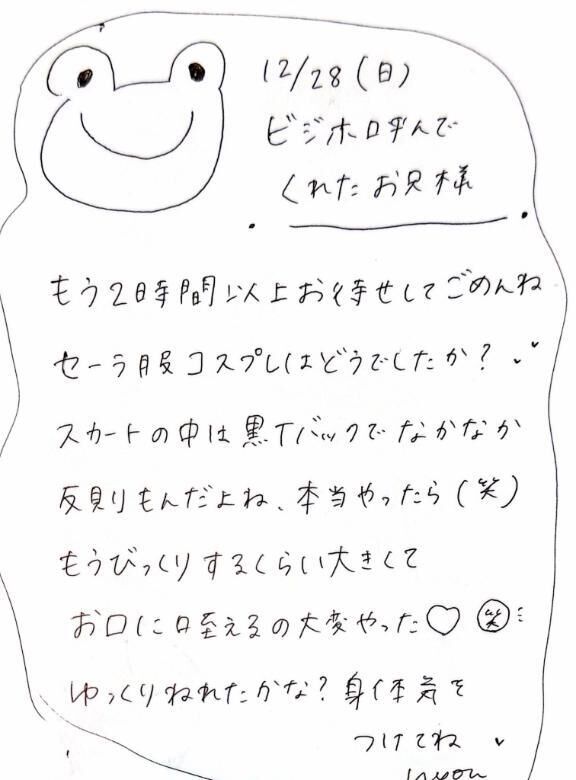 12/28(日)
ビジホ呼んで
くれたお兄様
もう2時間以上お待せしてごめんね
セーラ服コスプレはどうでしたか?
スカートの中は黒Tバックでなかなか
反則もんだよね、本当やったら(笑)
もうびっくりするくらい大きくて
お口に咥えるの大変やった♡ ㊗
ゆっくりねれたかな?身体気を
つけてね